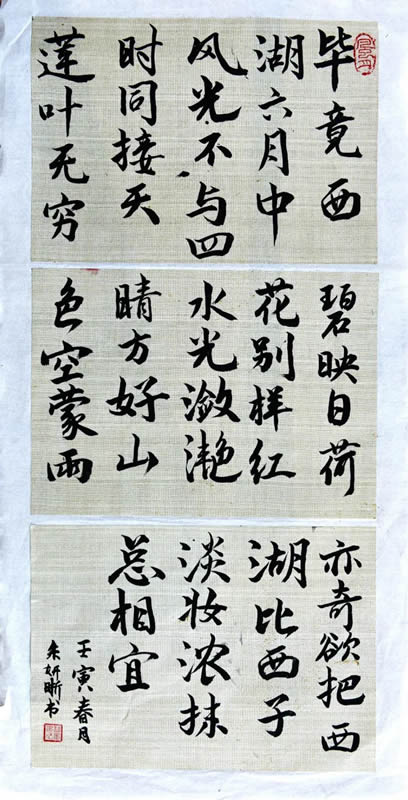 毕竟西
湖六月中
风光不与四
时同接天
莲叶无穷
碧映日荷
花别样红
水光潋滟
晴方好山
色空蒙雨
亦奇欲把西
湖比西子
淡妆浓抹
总相宜
壬寅春月
朱妍昕书